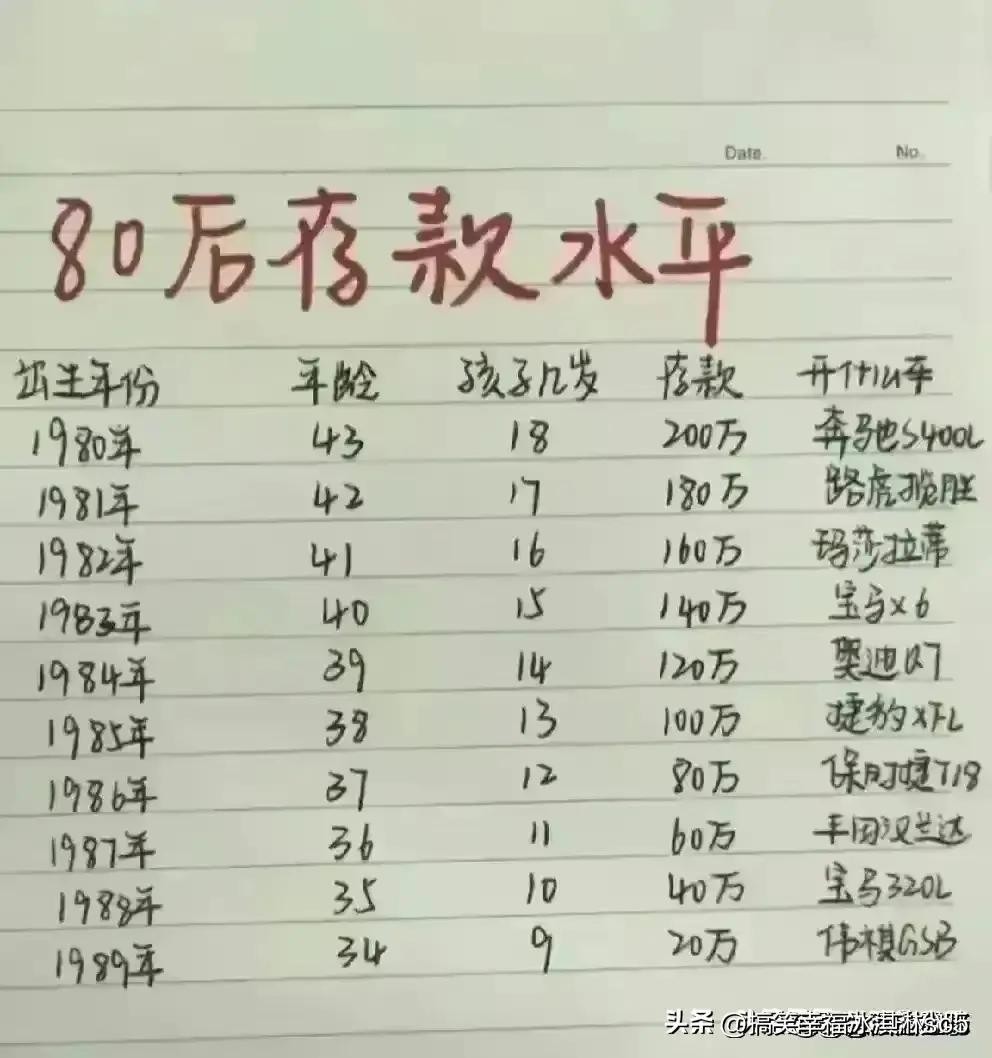 Date.	No.
80后存款水平
出生年份 年龄 孩子几岁 存款 开什么车
1980年 43 18 200万 奔驰S400L
1981年 42 17 180万 路虎揽胜
1982年 41 16 160万 玛莎拉蒂
1983年 40 15 140万 宝马x6
1984年 39 14 120万 奥迪Q7
1985年 38 13 100万 捷豹XFL
1986年 37 12 80万 保时捷718
1987年 36 11 60万 丰田汉兰达
1988年 35 10 40万 宝马320L
1989年 34 9 20万 传祺GS8
头条